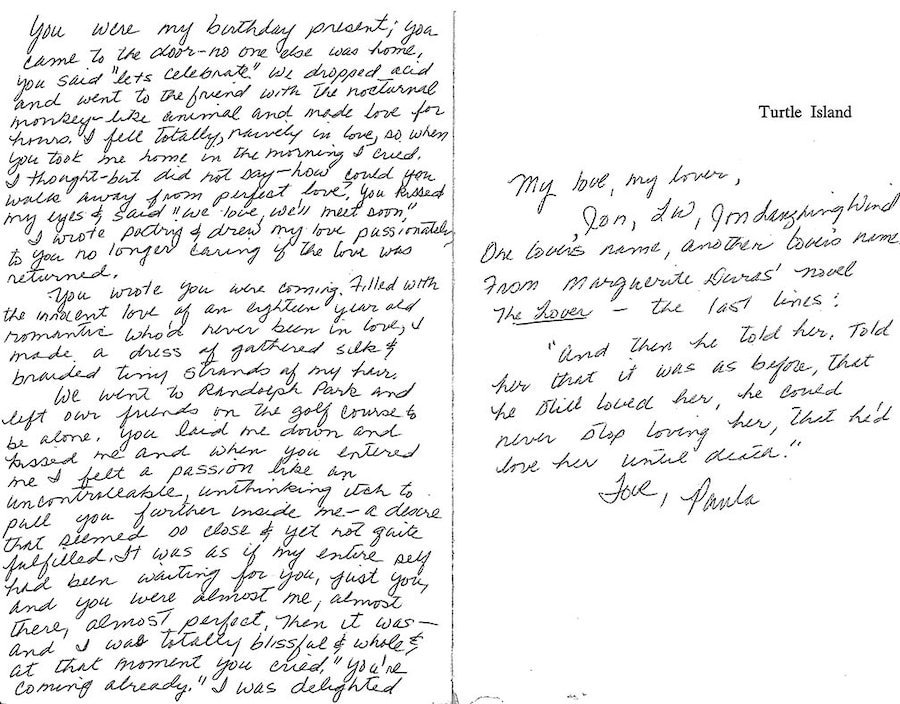 You were my birthday present; you
came to the door-no one else was home,
you said "lets celebrate." We dropped acid
and went to the friend with the nocturnal
monkey-like animal and made love for
hours. I fell totally, naively in love, so when
you took me home in the morning I cried.
I thought-but did not say-how could you
walk away from perfect love? You kissed
my eyes & said "we love, we'll meet soon,"
I wrote poetry & drew my love passionately
to you no longer caring if the love was
returned.
You wrote you were coming. Filled with
the inocent love of an eighteen year old
romantic who'd never been in love, I
made a dress of gathered silk &
braided tiny strands of my hair.
We went to Randolph Park and
left our friends on the golf course to
be alone. You laid me down and
kissed me and when you entered
me I felt a passion like an
uncontrolleable, unthinking itch to
pull you further inside me-a desire
that seemed so close & yet not quite
fulfilled. It was as if my entire self
had been waiting for you, just you,
and you were almost me, almost
there, almost perfect, Then it was-
and I was totally blissful & whole &
at that moment you cried "you're
coming already." I was delighted
Turtle Island
My love, my lover,
Jon, LW, Jondanzhing Wind
One lover's name, another lover's name
From Marguerite Duras' novel
The Lover - the last lines:
"And then he told her. Told
her that it was as before, that
he still loved her, he could
never stop loving her, that he'd
love her until death."
Love, Paula